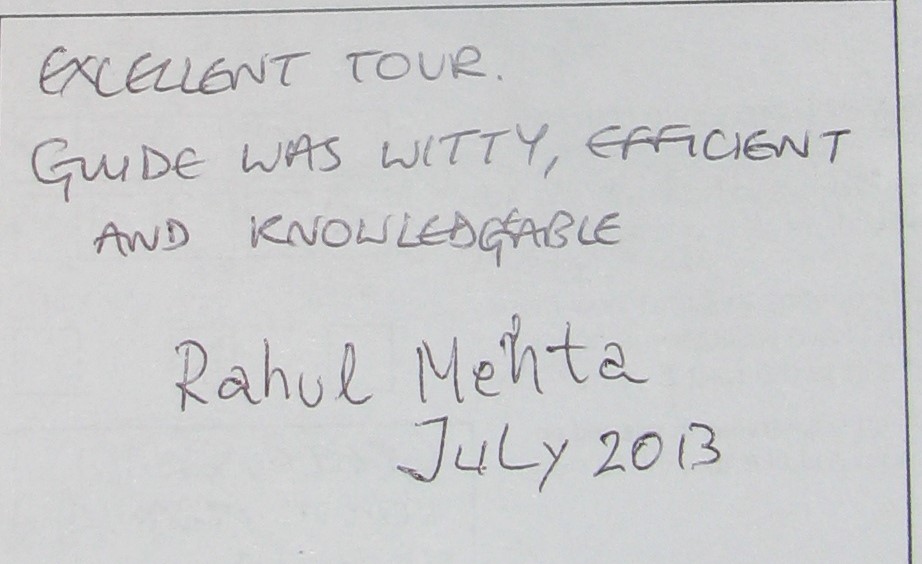 EXCELLENT TOUR.
GUIDE WAS WITTY, EFFICIENT
AND KNOWLEDGEABLE
Rahul Mehta
JULY 2013